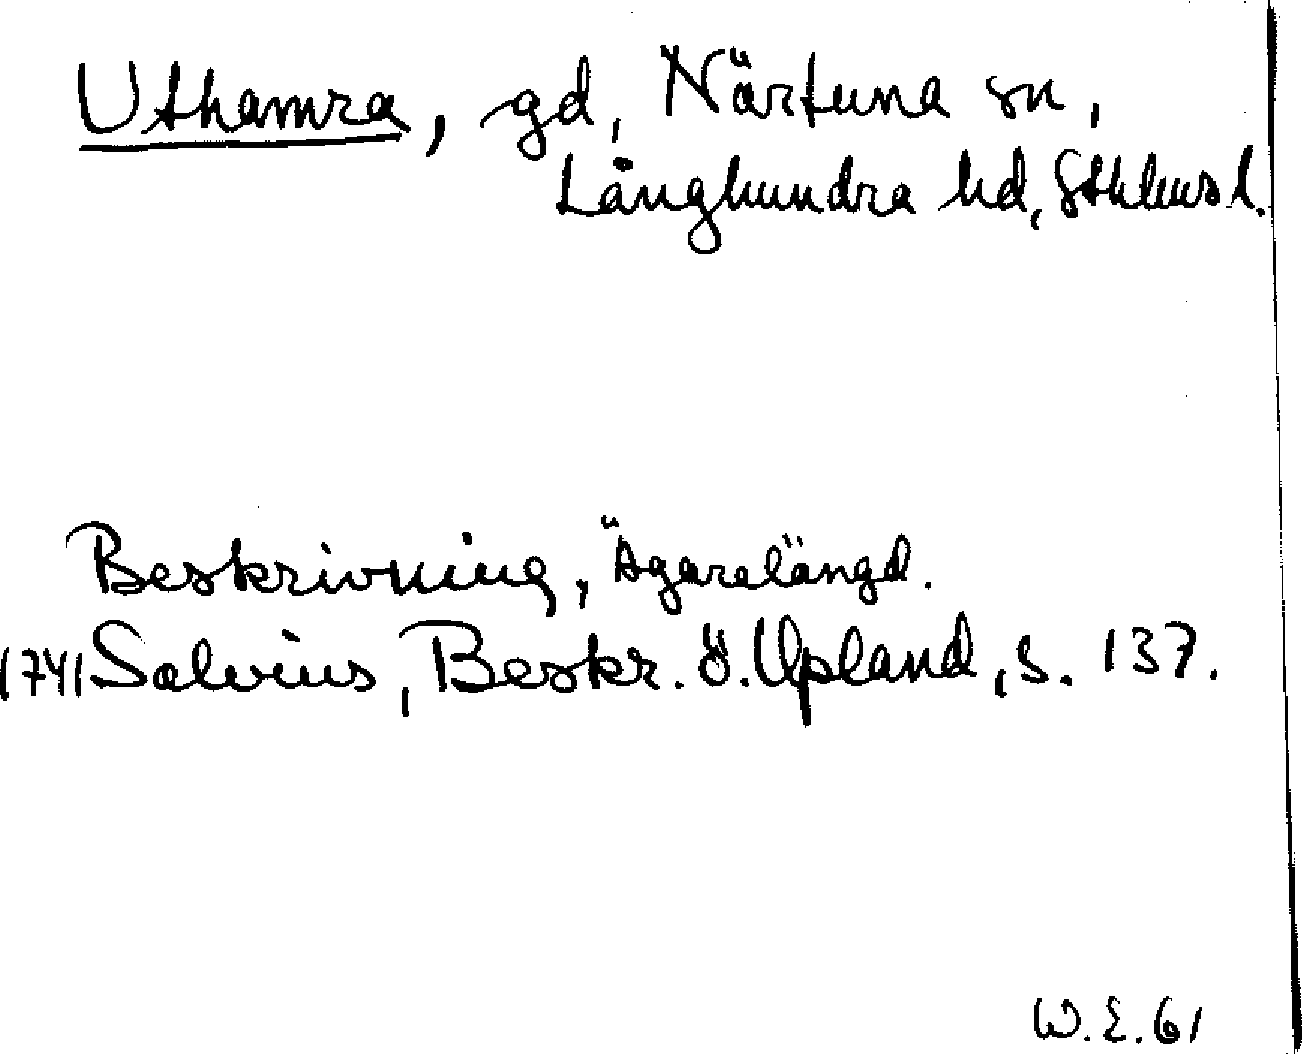 Uthamra, gd, Närtuna sn,
Långhundra hd, Sthlms l.
Beskrivning, Ägarelängd.
1741 Salvius, Beskr. ö. Upland, s. 137.
W. E. 61